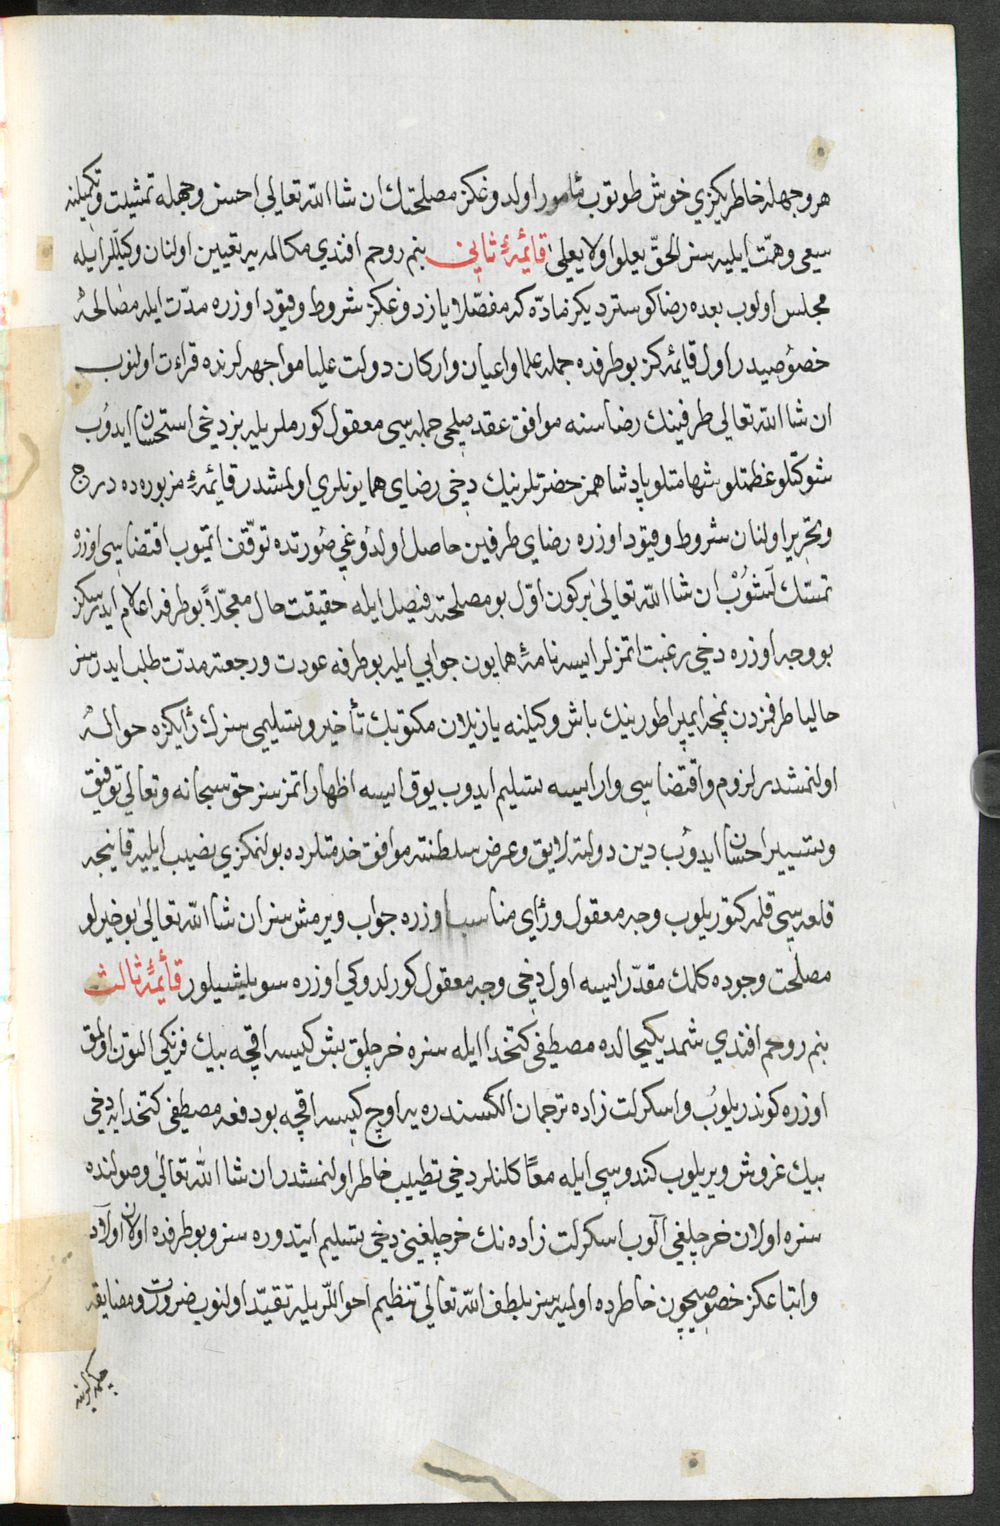 هر وجهله خاطریکزی خوش طوتوب مأمور اولدوغکز مصلحتك ان شا الله تعالی احسن وجهله تمشیت و تکمیلنه
سعی و همّت ایلیه سز الحقّ یعلو اولا یعلی قایمۀ ثانی بنم روحم افندی مکالمه یه تعیین اولنان وکیللر ایله
مجلس اولوب بعده رضا کوستردیکز مادّه که مفصّلا یازدوغکز شروط و قیود اوزره مدّت ایله مصالحۀ
خصوصیدر اول قایمه کز بو طرفده جمله علما و اعیان و ارکان دولت علیا مواجهه لرنده قراءت اولنوب
ان شا الله تعالی طرفینك رضاسنه موافق عقد صلحی جمله سی معقول کورملریله بز دخی استحسان ایدوب
شوکتلو عظمتلو شهامتلو پادشاهمز حضرتلرینك دخی رضای همایونلری اولمشدر قایمۀ مزبوره ده درج
و تحریر اولنان شروط و قیود اوزره رضای طرفین حاصل اولدوغی صورتده توقّف اتمیوب اقتضاسی اوزره
تمسّك آلشوب ان شا الله تعالی بر کون اوّل بو مصلحته فیصل ایله حقیقت حال معجّلاً بو طرفه اعلام ایدرسکز
بو وجه اوزره دخی رغبت اتمزلر ایسه نامۀ همایون جوابی ایله بو طرفه عودت و رجعته مدّت طلب ایدرسز
حالیا طرفمزدن نمچه ایمپراطورینك باش وکیلنه یازیلان مکتوبك تأخیر و تسلیمی سزك رأیکزه حواله
اولنمشدر لزوم و اقتضاسی وار ایسه تسلیم ایدوب یوق ایسه اظهار اتمزسز حق سبحانه و تعالی توفیق
و تیسیر احسان ایدوب دین دولته لایق و عرض سلطنته موافق خدمتلرده بولنمکزی نصیب ایلیه قاینجه
قلعه سی قلمه کتوریلوب وجه معقول و رأی مناسب اوزره جواب ویرمش سز ان شا الله تعالی بو خیرلو
مصلحت وجوده کلمك مقدّر ایسه اول دخی وجه معقول کورلدوکی اوزره سویلشیلور قایمۀ ثالث
بنم روحم افندی شمدیکیحالده مصطفی کتخدا ایله سزه خرجلق بش کیسه اقچه بیك فرنکی التون اولمق
اوزره کوندریلوب و اسکرلت زاده ترجمان الکسندره یه اوچ کیسه اقچه بو دفعه مصطفی کتخدایه دخی
بیك غروش ویریلوب کندوسی ایله معًا کلنلر دخی تطییب خاطر اولنمشدر ان شا الله تعالی وصولنده
سزه اولان خرجلغی آلوب اسکرلت زاده نك خرجلغنی دخی تسلیم ایتدوره سز و بو طرفده اولان اولاد
و اتباعکز خصوصیچون خاطرده اولمیه سز بلطف الله تعالی تنظیم احواللریله تقیّد اولنوب ضرورت و مضایقه
چکمه لرینه